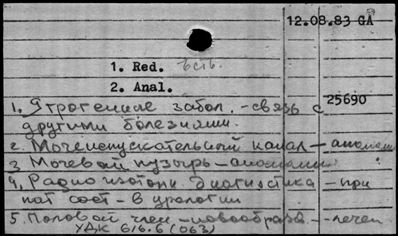 12.08.83 GA
1. Red. есть
2. Anal.
25690
1. Ятрогенные забол. - связь с
другими болезнями.
2. Мочеиспускательный канал - аномалии
3 Мочевой пузырь - аномалии
4. Радиоизотопн. диагностика - при
пат сост - в урологии
5. Половой член - новообразов - лечен
УДК 616.6 (063)